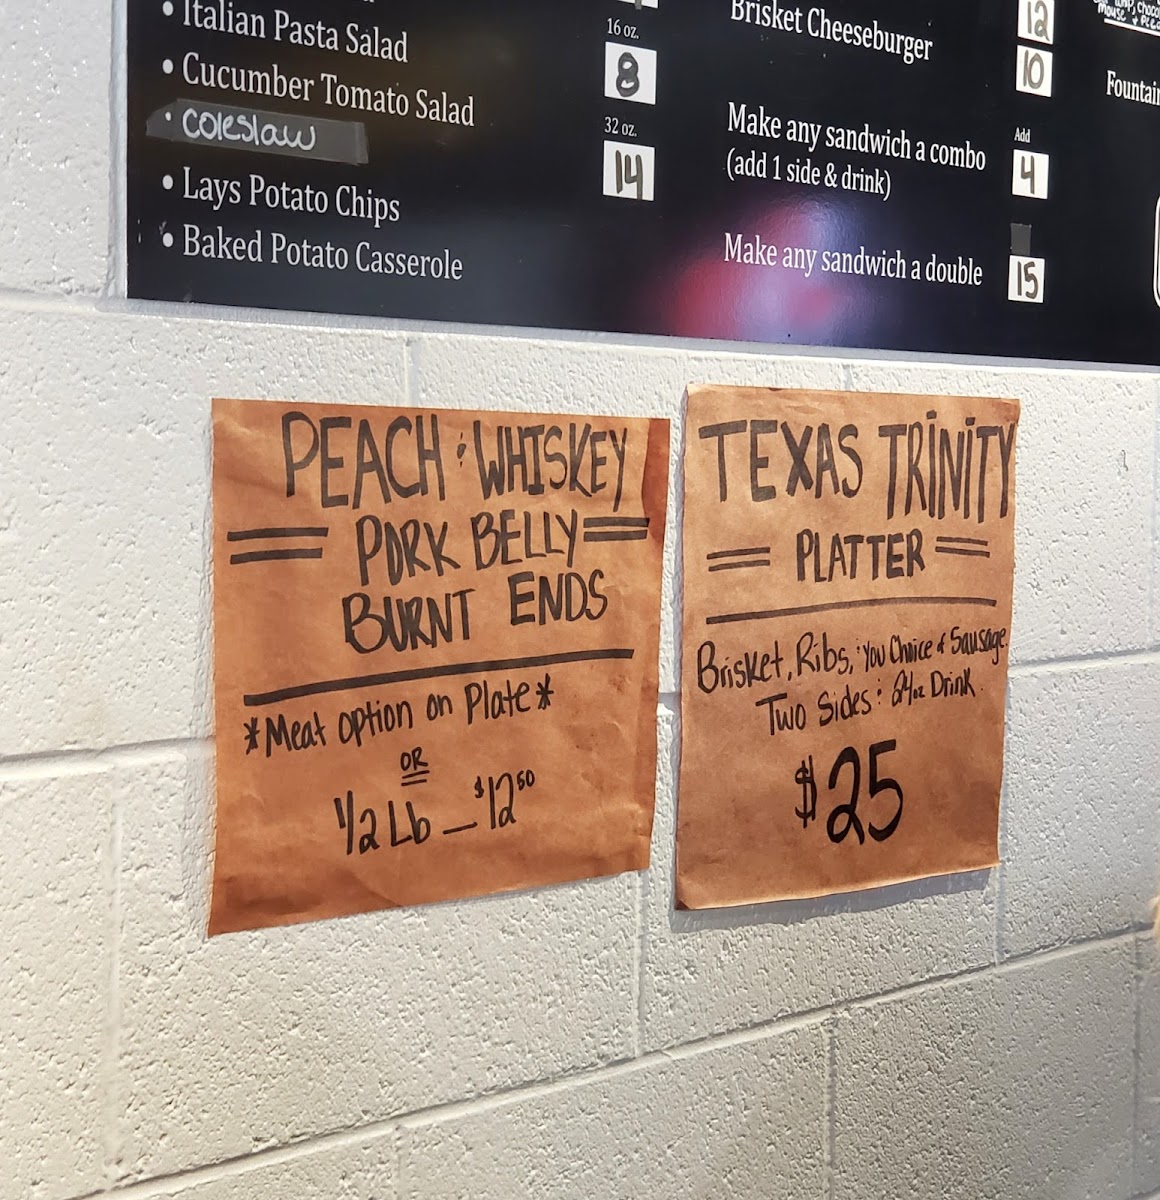 • Italian Pasta Salad
• Cucumber Tomato Salad
• coleslaw
• Lays Potato Chips
• Baked Potato Casserole
16 oz.
8
32 oz.
14
Brisket Cheeseburger
12
10
Make any sandwich a combo
(add 1 side & drink)
Add
4
Make any sandwich a double
15
Fountain
PEACH & WHISKEY
PORK BELLY
BURNT ENDS
*Meat option on Plate*
OR
1/2 Lb — $12⁵⁰
TEXAS TRINITY
PLATTER
Brisket, Ribs, & You Choice of Sausage.
Two Sides & 24oz Drink.
$25